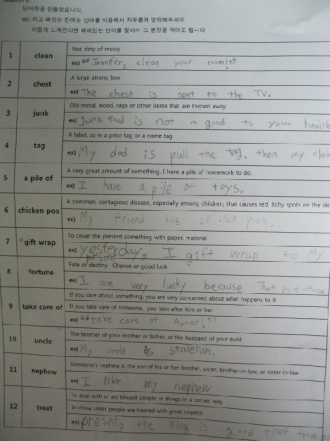 단어장을 만들었습니다.
1 clean
Not dirty or messy
ex) "Jennifer, clean your room!"
2 chest
A large strong box
ex) The chest is next to the TV.
3 junk
Old metal, wood, rags or other items that are thrown away
ex) Junk food is not a good to your health
4 tag
A label, as in a price tag or a name tag
ex) My dad is pull the tag, then my
5 a pile of
A very great amount of something. I have a pile of homework to do.
ex) I have a pile of toys.
6 chicken pox
A common, contagious disease, especially among children, that causes red, itchy spots on the
ex) My friend has chicken pox.
7 gift wrap
To cover the percent something with paper, material
ex) yesterday, I gift wrap to my
8 fortune
Fate or destiny. Chance or good luck
ex) I am very lucky because
9 take care of
If you care about something, you are very concerned about what happens to it
If you take care of someone, you look after him or her
ex) "Take care of
10 uncle
The brother of your mother or father, or the husband of your aunt
ex) My uncle is
11 nephew
Someone's nephew is the son of his or her brother, sister, brother-in-law, or sister-in-law
ex) I like my nephew
12 treat
To deal with or act toward people or things in a certain way.
In china, older people are treated with great respect
ex) present, the king is good treat from